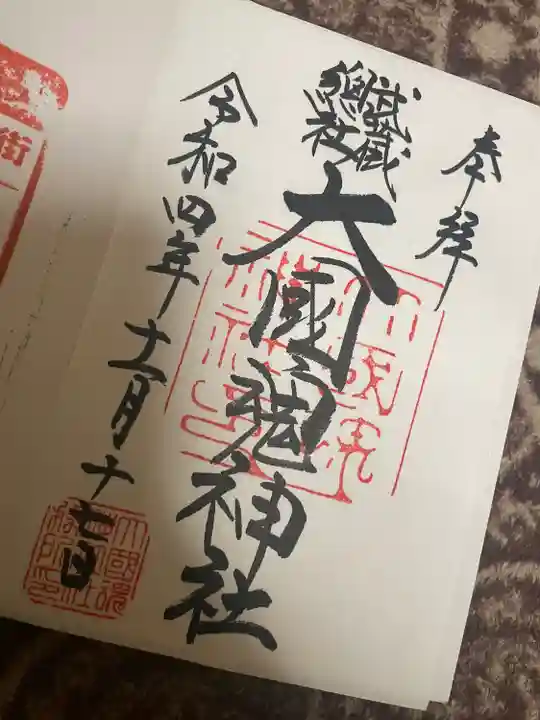 奉拝
武蔵
總社
大國魂神社
令和四年十一月十七日
街